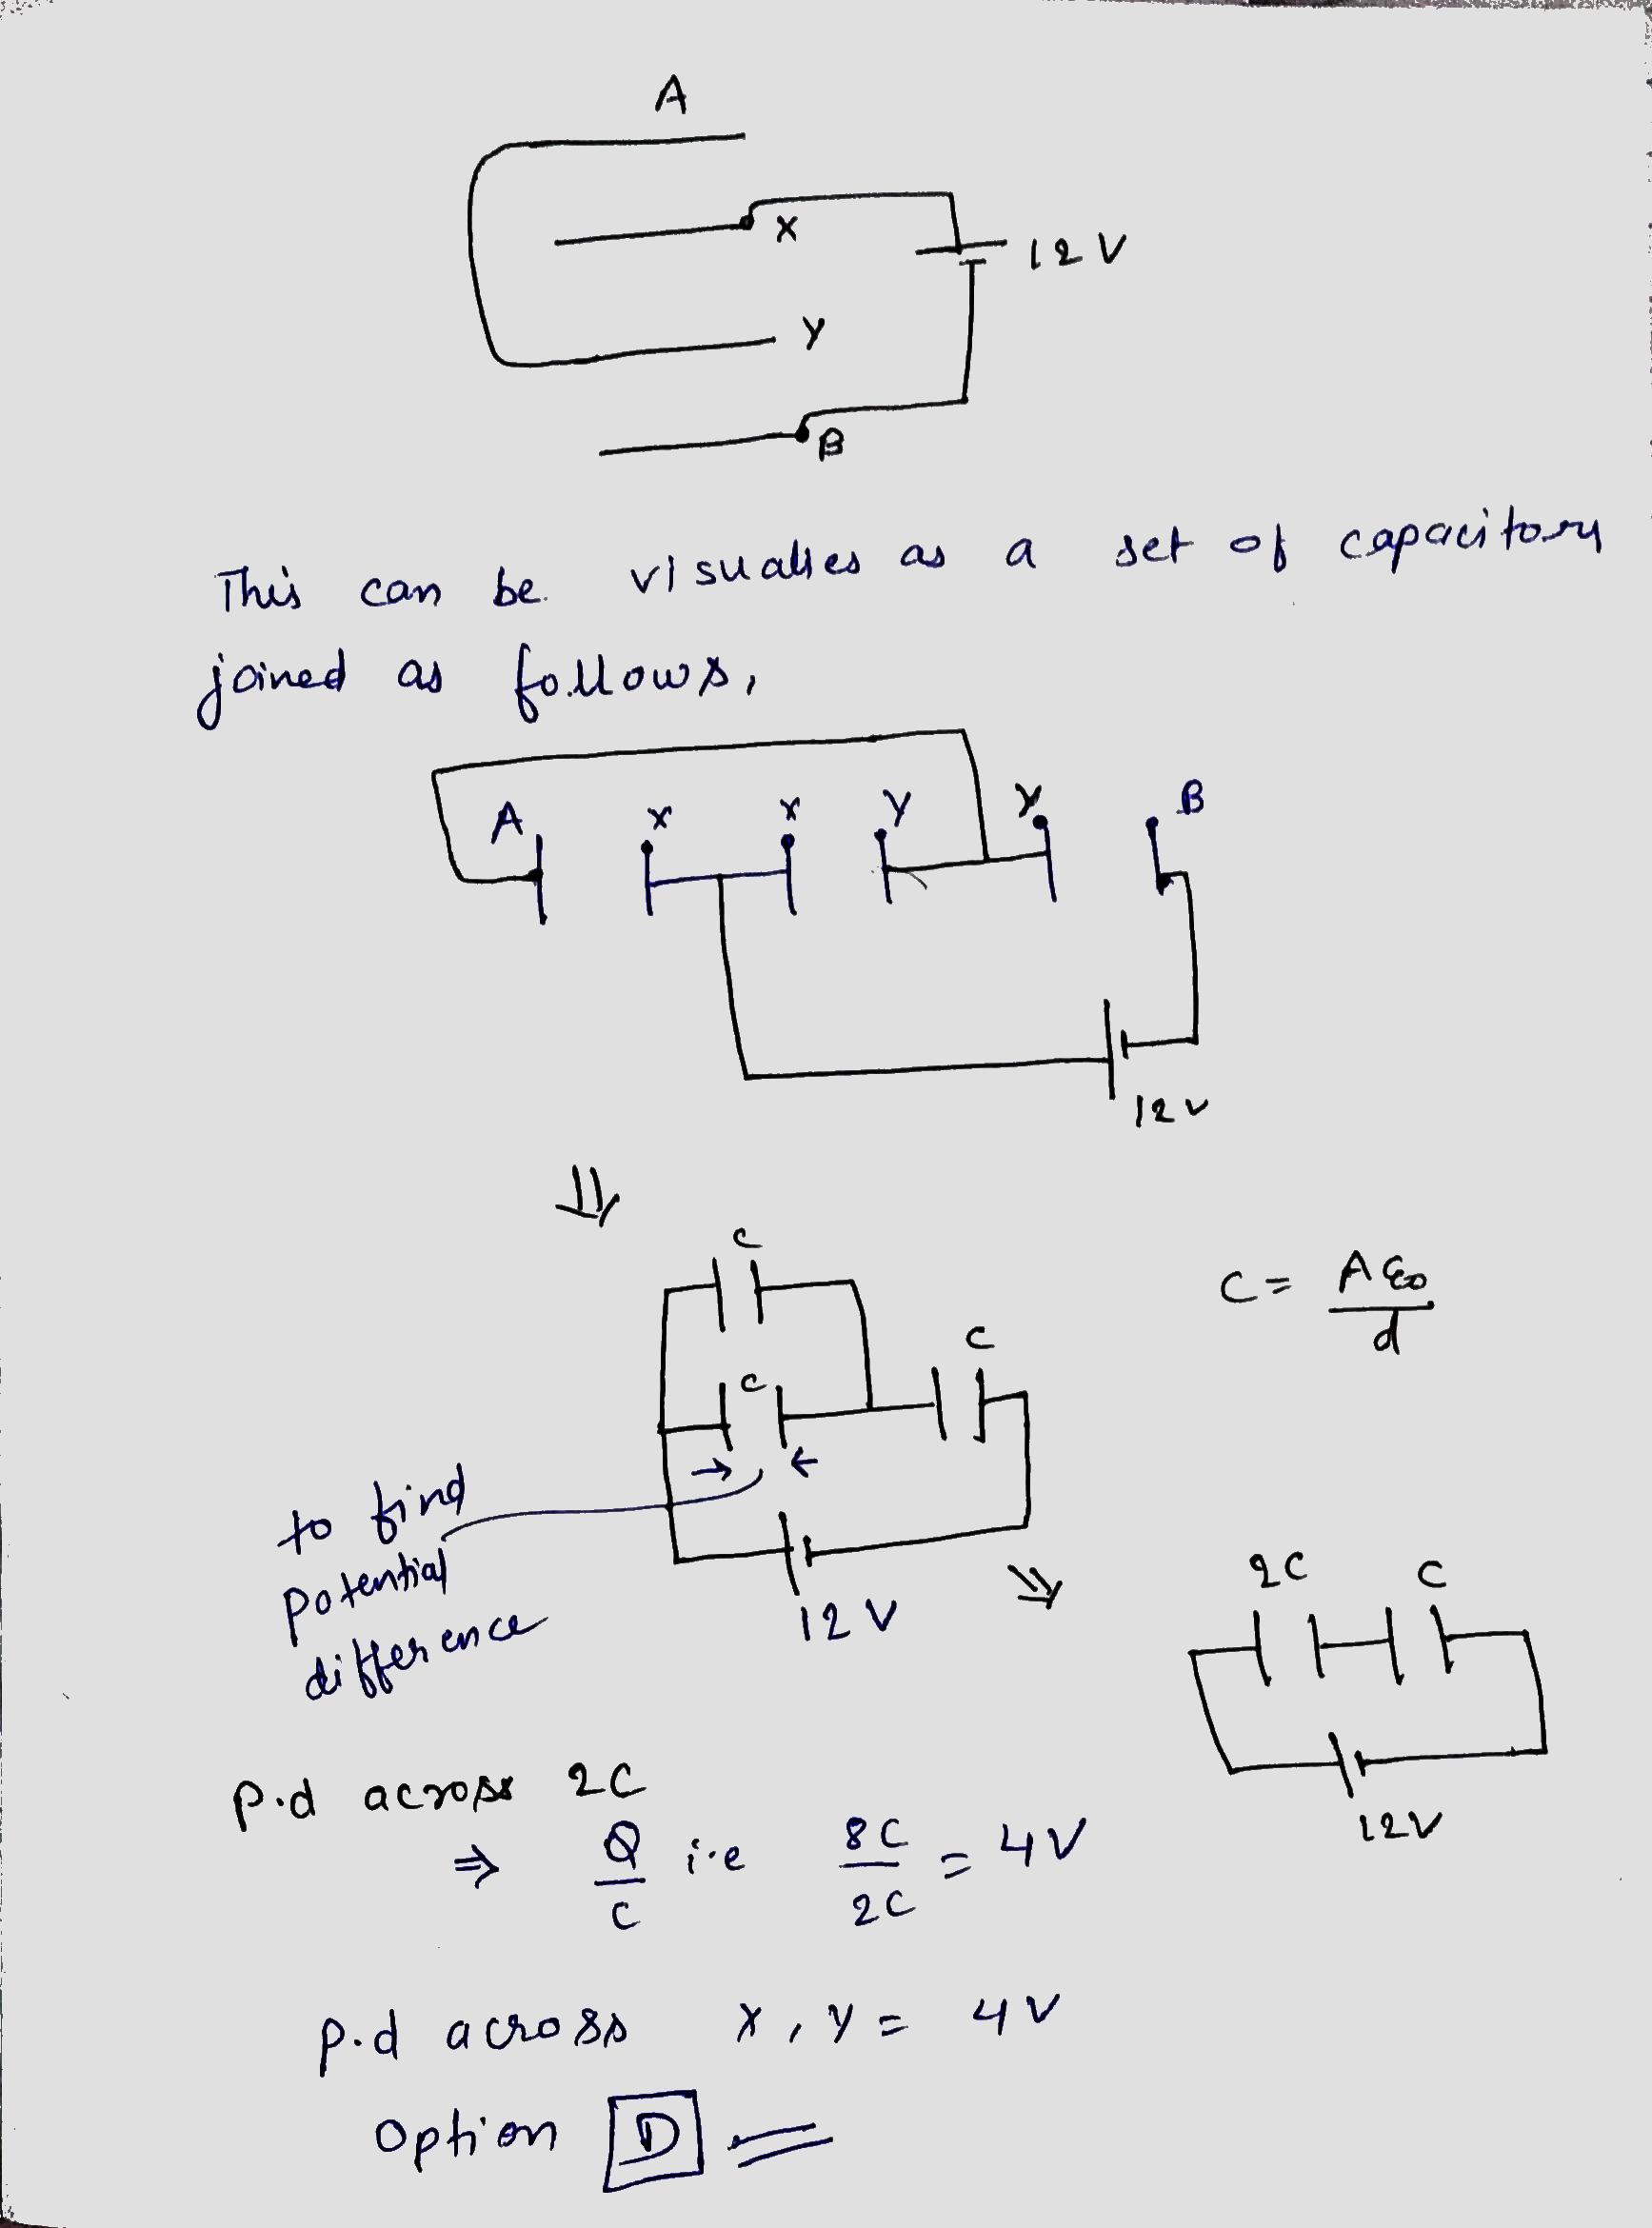 A
X
12 V
Y
B
This can be visualies as a set of capacitors
joined as follows,
A X X Y Y B
12 V
⇓
C
C = Aε0/d
C
C
to find
potential
difference
12 V
⇒
2C C
12V
P.d across 2C
⇒ Q/C i.e 8C/2C = 4V
P.d across X, Y = 4V
Option D